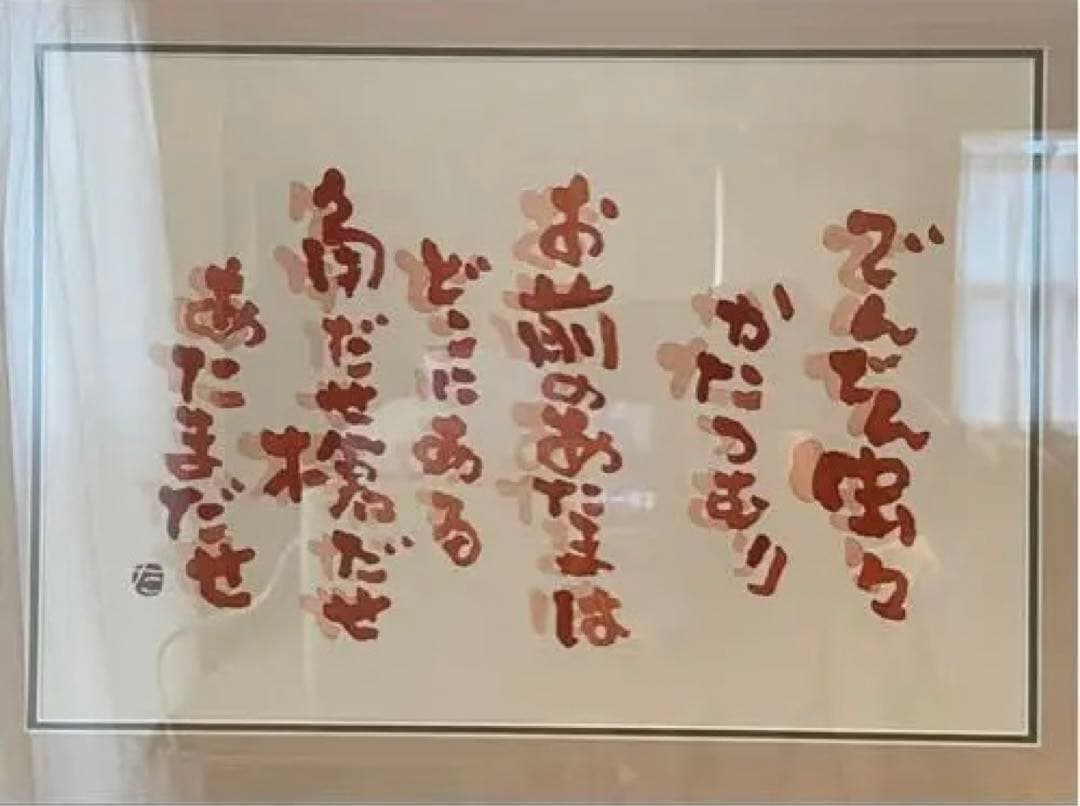 でんでん虫々
かたつむり
お前のあたまは
どこにある
角だせ槍だせ
あたまだせ